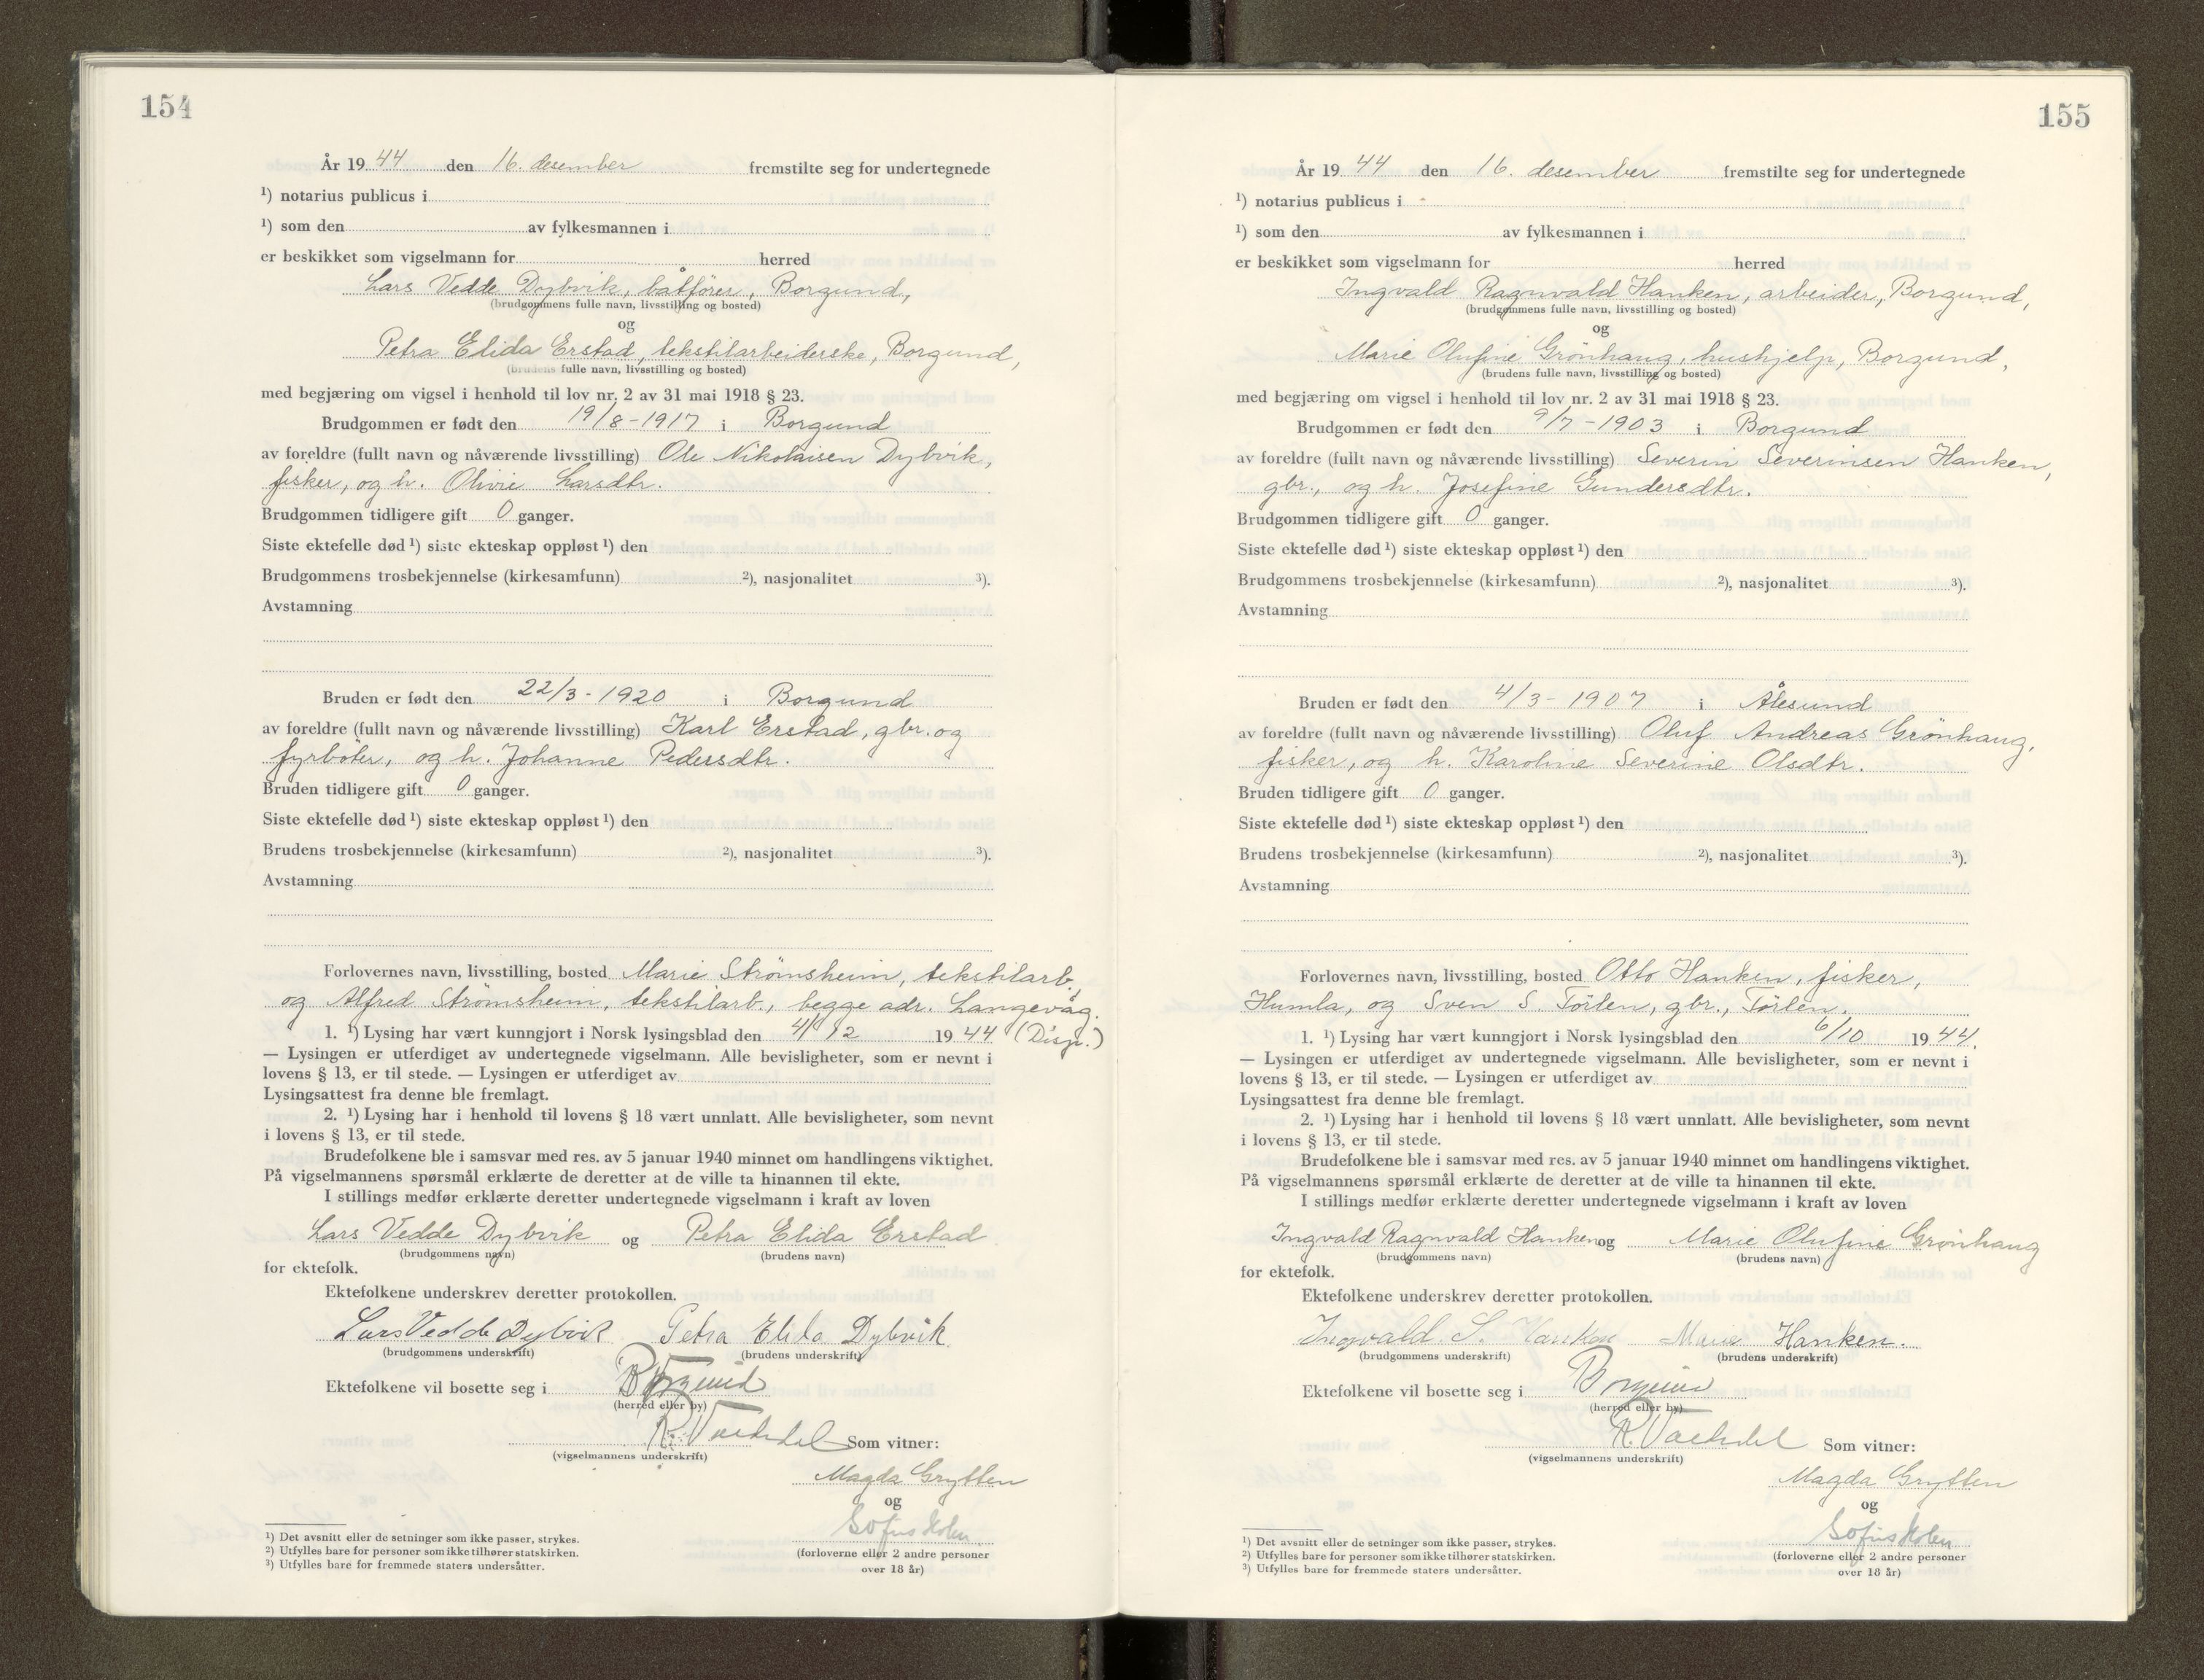 154
År 19 44 den 16. desember fremstilte seg for undertegnede
¹) notarius publicus i
¹) som den av fylkesmannen i
er beskikket som vigselmann for herred
Lars Vedde Dybvik, båtfører, Borgund,
(brudgommens fulle navn, livsstilling og bosted)
og
Petra Elida Erstad, tekstilarbeiderske, Borgund,
(brudens fulle navn, livsstilling og bosted)
med begjæring om vigsel i henhold til lov nr. 2 av 31 mai 1918 § 23.
Brudgommen er født den 19/8-1917 i Borgund
av foreldre (fullt navn og nåværende livsstilling) Ole Nikolaisen Dybvik,
fisker, og h. Olivie Larsdtr.
Brudgommen tidligere gift 0 ganger.
Siste ektefelle død ¹) siste ekteskap oppløst ¹) den
Brudgommens trosbekjennelse (kirkesamfunn) ²), nasjonalitet ³).
Avstamning
Bruden er født den 22/3-1920 i Borgund
av foreldre (fullt navn og nåværende livsstilling) Karl Erstad, gbr. og
fyrbøter, og h. Johanne Pedersdtr.
Bruden tidligere gift 0 ganger.
Siste ektefelle død ¹) siste ekteskap oppløst ¹) den
Brudens trosbekjennelse (kirkesamfunn) ²), nasjonalitet ³).
Avstamning
Forlovernes navn, livsstilling, bosted Marie Strømsheim, tekstilarb.,
og Alfred Strømsheim, tekstilarb., begge adr. Langevåg.
1. ¹) Lysing har vært kunngjort i Norsk lysingsblad den 4/12 19 44 (Disp.)
— Lysingen er utferdiget av undertegnede vigselmann. Alle bevisligheter, som er nevnt i
lovens § 13, er til stede. — Lysingen er utferdiget av
Lysingsattest fra denne ble fremlagt.
2. ¹) Lysing har i henhold til lovens § 18 vært unnlatt. Alle bevisligheter, som nevnt
i lovens § 13, er til stede.
Brudefolkene ble i samsvar med res. av 5 januar 1940 minnet om handlingens viktighet.
På vigselmannens spørsmål erklærte de deretter at de ville ta hinannen til ekte.
I stillings medfør erklærte deretter undertegnede vigselmann i kraft av loven
Lars Vedde Dybvik og Petra Elida Erstad
(brudgommens navn) (brudens navn)
for ektefolk.
Ektefolkene underskrev deretter protokollen.
Lars Vedde Dybvik Petra Elida Dybvik
(brudgommens underskrift) (brudens underskrift)
Ektefolkene vil bosette seg i Borgund
(herred eller by)
Som vitner:
(vigselmannens underskrift)
Magda Grytten
og
Sofus Holen
(forloverne eller 2 andre personer
over 18 år)
¹) Det avsnitt eller de setninger som ikke passer, strykes.
²) Utfylles bare for personer som ikke tilhører statskirken.
³) Utfylles bare for fremmede staters undersåtter.
155
År 19 44 den 16. desember fremstilte seg for undertegnede
¹) notarius publicus i
¹) som den av fylkesmannen i
er beskikket som vigselmann for herred
Ingvald Ragnvald Hanken, arbeider, Borgund,
(brudgommens fulle navn, livsstilling og bosted)
og
Marie Olufine Grönhaug, hushjelp, Borgund,
(brudens fulle navn, livsstilling og bosted)
med begjæring om vigsel i henhold til lov nr. 2 av 31 mai 1918 § 23.
Brudgommen er født den 9/7-1903 i Borgund
av foreldre (fullt navn og nåværende livsstilling) Severin Severinsen Hanken,
gbr., og h. Josefine Gundersdtr.
Brudgommen tidligere gift 0 ganger.
Siste ektefelle død ¹) siste ekteskap oppløst ¹) den
Brudgommens trosbekjennelse (kirkesamfunn) ²), nasjonalitet ³).
Avstamning
Bruden er født den 4/3-1907 i Ålesund
av foreldre (fullt navn og nåværende livsstilling) Oluf Andreas Grönhaug,
fisker, og h. Karoline Severine Olsdtr.
Bruden tidligere gift 0 ganger.
Siste ektefelle død ¹) siste ekteskap oppløst ¹) den
Brudens trosbekjennelse (kirkesamfunn) ²), nasjonalitet ³).
Avstamning
Forlovernes navn, livsstilling, bosted Otto Hanken, fisker,
Humla, og Sven S. Tørlen, gbr., Tørlen.
1. ¹) Lysing har vært kunngjort i Norsk lysingsblad den 6/10 19 44.
— Lysingen er utferdiget av undertegnede vigselmann. Alle bevisligheter, som er nevnt i
lovens § 13, er til stede. — Lysingen er utferdiget av
Lysingsattest fra denne ble fremlagt.
2. ¹) Lysing har i henhold til lovens § 18 vært unnlatt. Alle bevisligheter, som nevnt
i lovens § 13, er til stede.
Brudefolkene ble i samsvar med res. av 5 januar 1940 minnet om handlingens viktighet.
På vigselmannens spørsmål erklærte de deretter at de ville ta hinannen til ekte.
I stillings medfør erklærte deretter undertegnede vigselmann i kraft av loven
Ingvald Ragnvald Hanken og Marie Olufine Grönhaug
(brudgommens navn) (brudens navn)
for ektefolk.
Ektefolkene underskrev deretter protokollen.
Ingvald S. Hanken Marie Hanken.
(brudgommens underskrift) (brudens underskrift)
Ektefolkene vil bosette seg i Borgund
(herred eller by)
Som vitner:
(vigselmannens underskrift)
Magda Grytten
og
Sofus Holen
(forloverne eller 2 andre personer
over 18 år)
¹) Det avsnitt eller de setninger som ikke passer, strykes.
²) Utfylles bare for personer som ikke tilhører statskirken.
³) Utfylles bare for fremmede staters undersåtter.